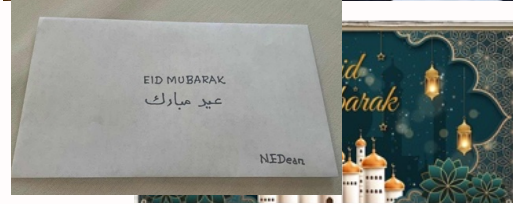 EID MUBARAK
عيد مبارك
N.EDean
id
barak